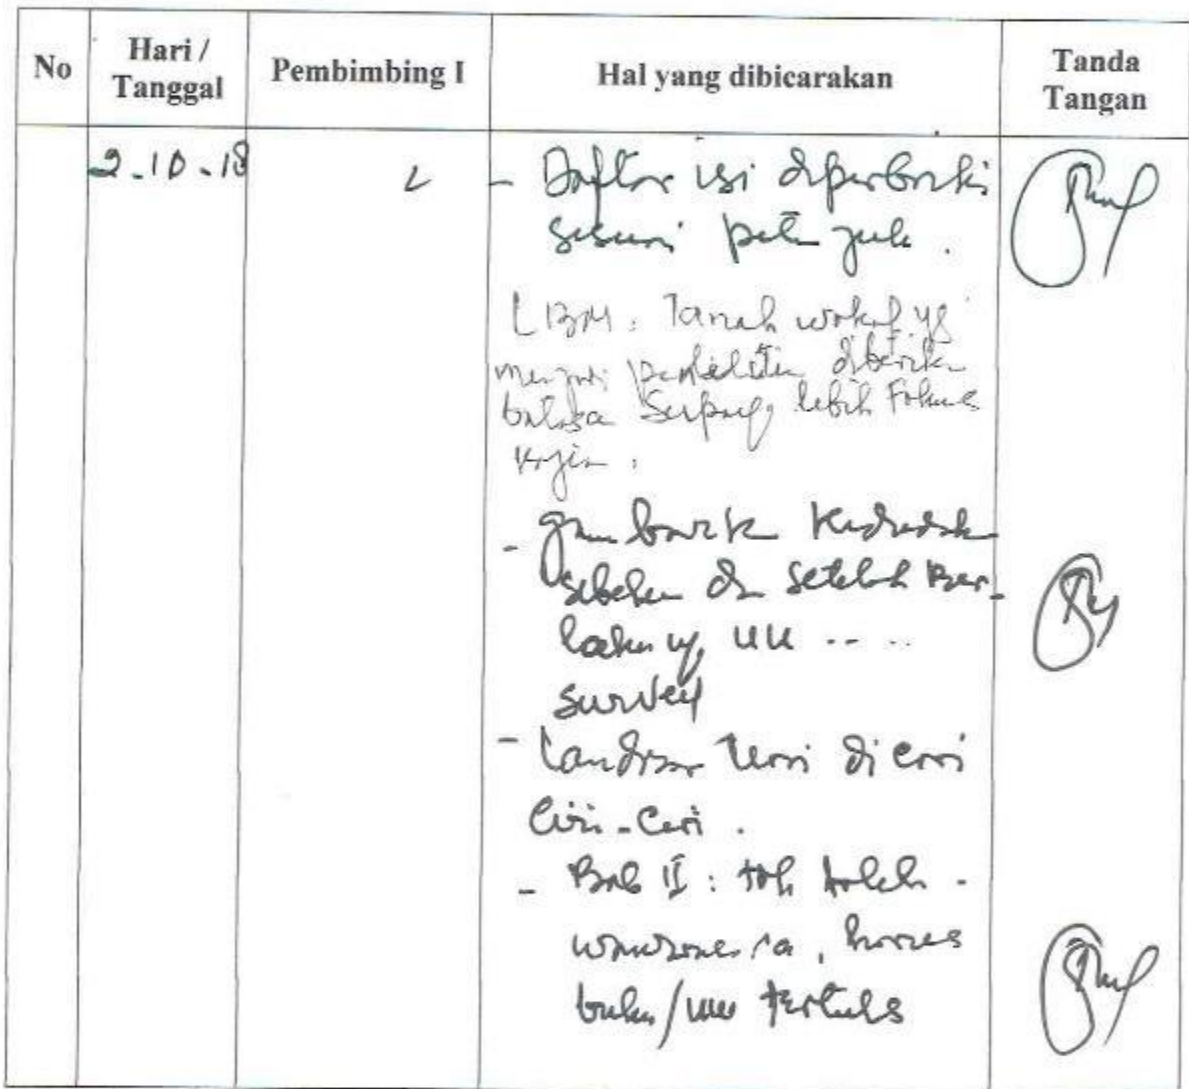 No
Hari /
Tanggal
Pembimbing I
Hal yang dibicarakan
Tanda
Tangan
2-10-18
- Daftar isi diperbaiki
sesuai petunjuk.
LBM: Tanah wakaf yg
menjadi penelitian diberikan
lebih Fokus
kajian.
- gambark
sebelum dan setelah Ber-
lakunya UU .....
survey
- Landasan teori di cari
Ciri-Ciri.
- Bab II:
harus
buku/UU tertulis